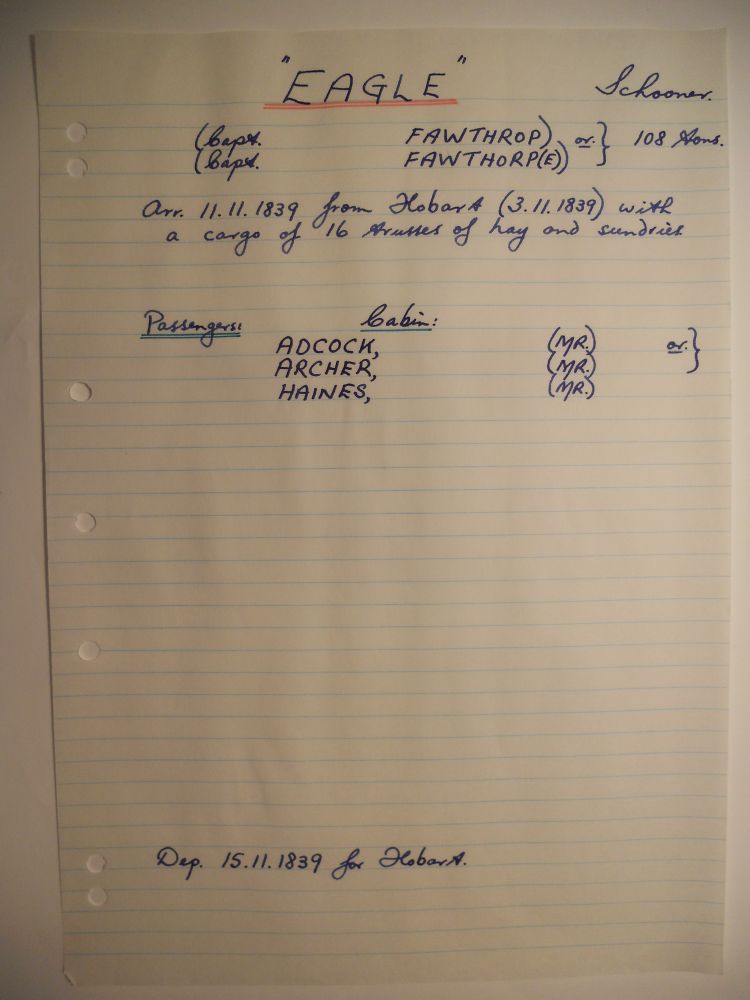 "EAGLE" Schooner.
(Capt. FAWTHROP) or } 108 tons.
(Capt. FAWTHORP(E))
Arr. 11.11.1839 from Hobart (3.11.1839) with
a cargo of 16 trusses of hay and sundries
Passengers: Cabin:
ADCOCK, (MR.) or }
ARCHER, (MR.)
HAINES, (MR.)
Dep. 15.11.1839 for Hobart.